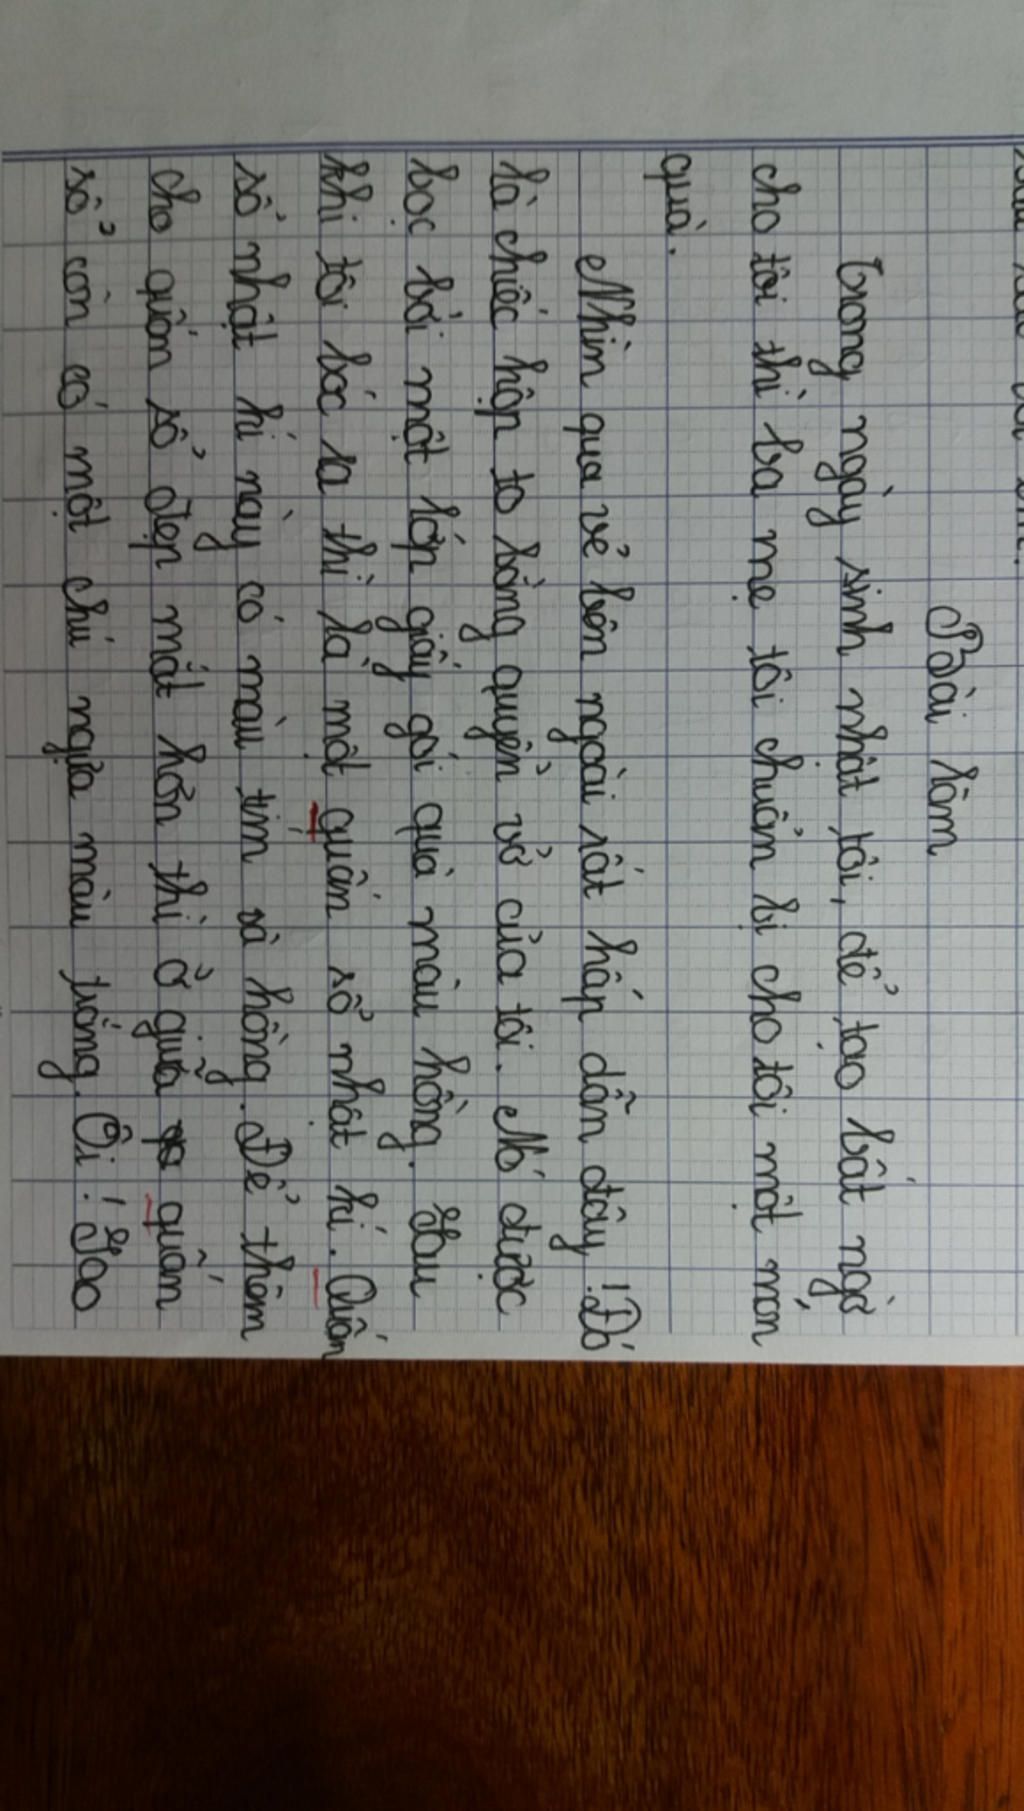 Bài làm
Trong ngày sinh nhật tôi, để tạo bất ngờ
cho tôi thì ba mẹ tôi chuẩn bị cho tôi một món
quà.
Nhìn qua vẻ bên ngoài rất hấp dẫn đây! Đó
là chiếc hộp to bằng quyển vở của tôi. Nó được
bọc bởi một lớp giấy gói quà màu hồng. Sau
khi tôi bóc ra thì là một quấn sổ nhật kí. Quấn
sổ nhật kí này có màu tím và hồng. Để thêm
cho quấn sổ đẹp mắt hơn thì ở giữa quấn
sổ còn có một chú ngựa màu trắng. Ôi! Sao